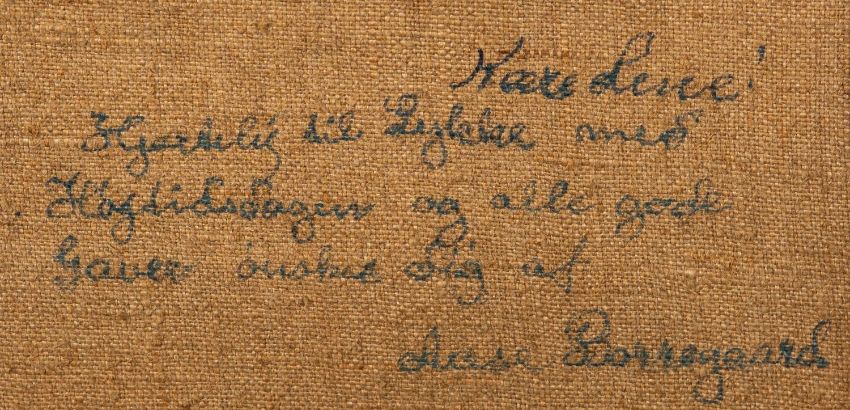 Kære Lene!
Hjertelig til Lykke med
Højtidsdagen og alle gode
Gaver ønskes Dig af
Aase Borregaard